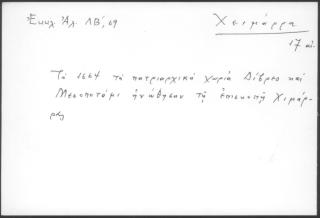 Ἐκκλ. Ἀλ. ΛΒ', 69
Χειμάρρα
17 αἰ.
Τὸ 1664 τὰ πατριαρχικὰ χωριὰ Δίβρες καὶ
Μεσοποτάμι ἡνώθησαν τῇ ἐπισκοπῇ Χιμάρ-
ρας